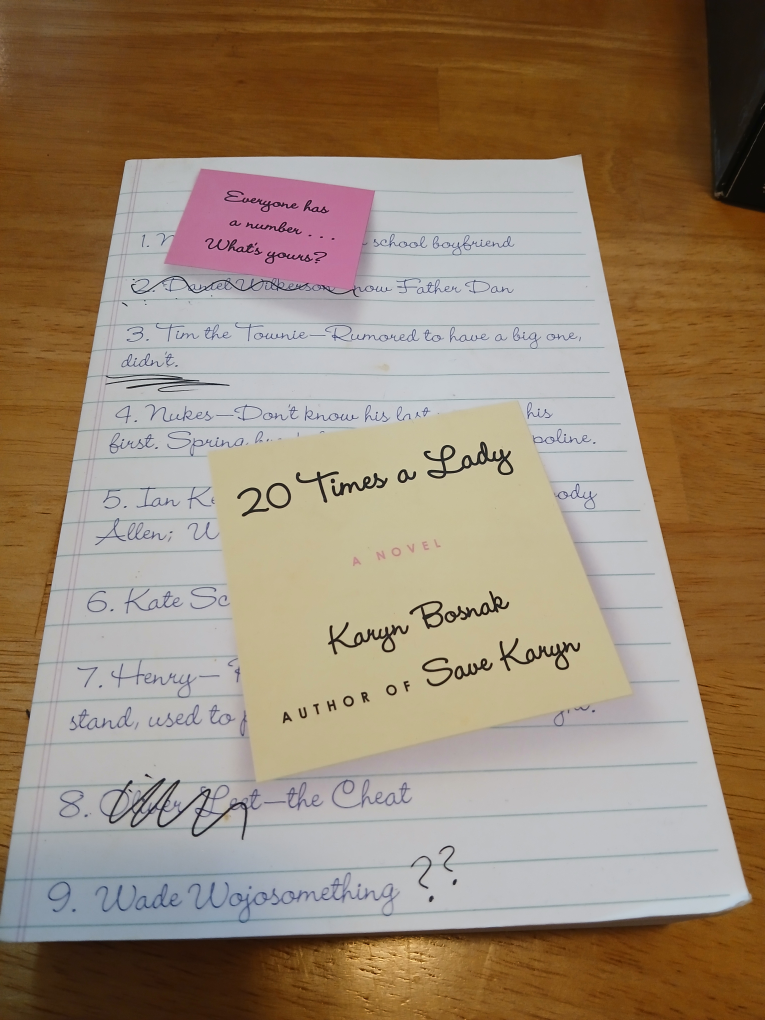 Everyone has
a number . . .
What's yours?
1. school boyfriend
2. Daniel Wilkerson now Father Dan
3. Tim the Townie—Rumored to have a big one,
didn't.
4. Nukes—Don't know his last his
first. Spring
5. Ian
Allen;
6. Kate
7. Henry—
stand, used to
8. the Cheat
9. Wade Wojosomething ??
20 Times a Lady
A NOVEL
Karyn Bosnak
AUTHOR OF Save Karyn